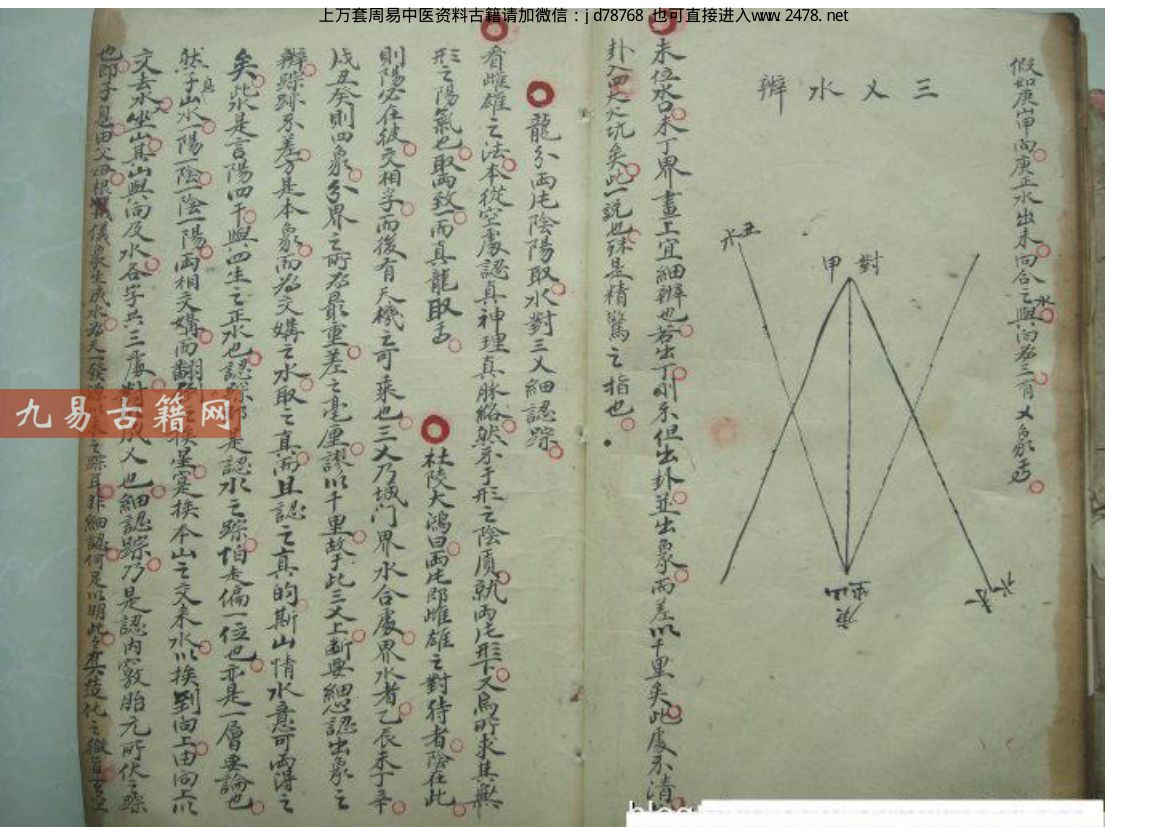 上万套周易中医资料古籍请加微信：jd78768 也可直接进入www.2478.net
假如庚山甲向庚正水出未向合之與向水為三肖乂象焉
三乂水辨
對
甲
丑
水
坐山
庚
未位水口未丁界畫上宜細辨也若出丁則不但出卦並出象而差以千里矣此處不清
卦入四大大坑矣此一説也殊是精驚之指也
龍分兩片陰陽取水對三乂細認踪
看雌雄之法本從空處認真神理真脉絡然牙于形之陰質孰兩片形下又烏所求其無
形之陽氣也取兩致一而真龍取焉
杜陵大鴻曰兩片即雌雄之對待者陰在此
則陽必在彼交相孚而後有天機之可乘也三乂乃城門界水合處界水者乙辰未丁辛
戌丑癸則四象分界之所為最重差之毫厘謬以千里故于此三乂上斷要細心認出象之
辨踪跡不差方是本象而為交媾之水取之真而且認之真的斯山情水意可兩得之
矣此水是言陽四干與四生之正水也認踪是認水之踪怕走偏一位也亦是一層要論也
然子山水一陽一陰一陰一陽兩相交媾而翻挨星寔挨本山之交來水以挨到向上由向上以
交去水坐山其山與向及水各字共三處對成乂也細認踪乃是認内竅胎元所伏之踪
也即子息由父母根儀象生成水為天一發之踪耳非細認何足以明此其造化之微
九易古籍网
blog